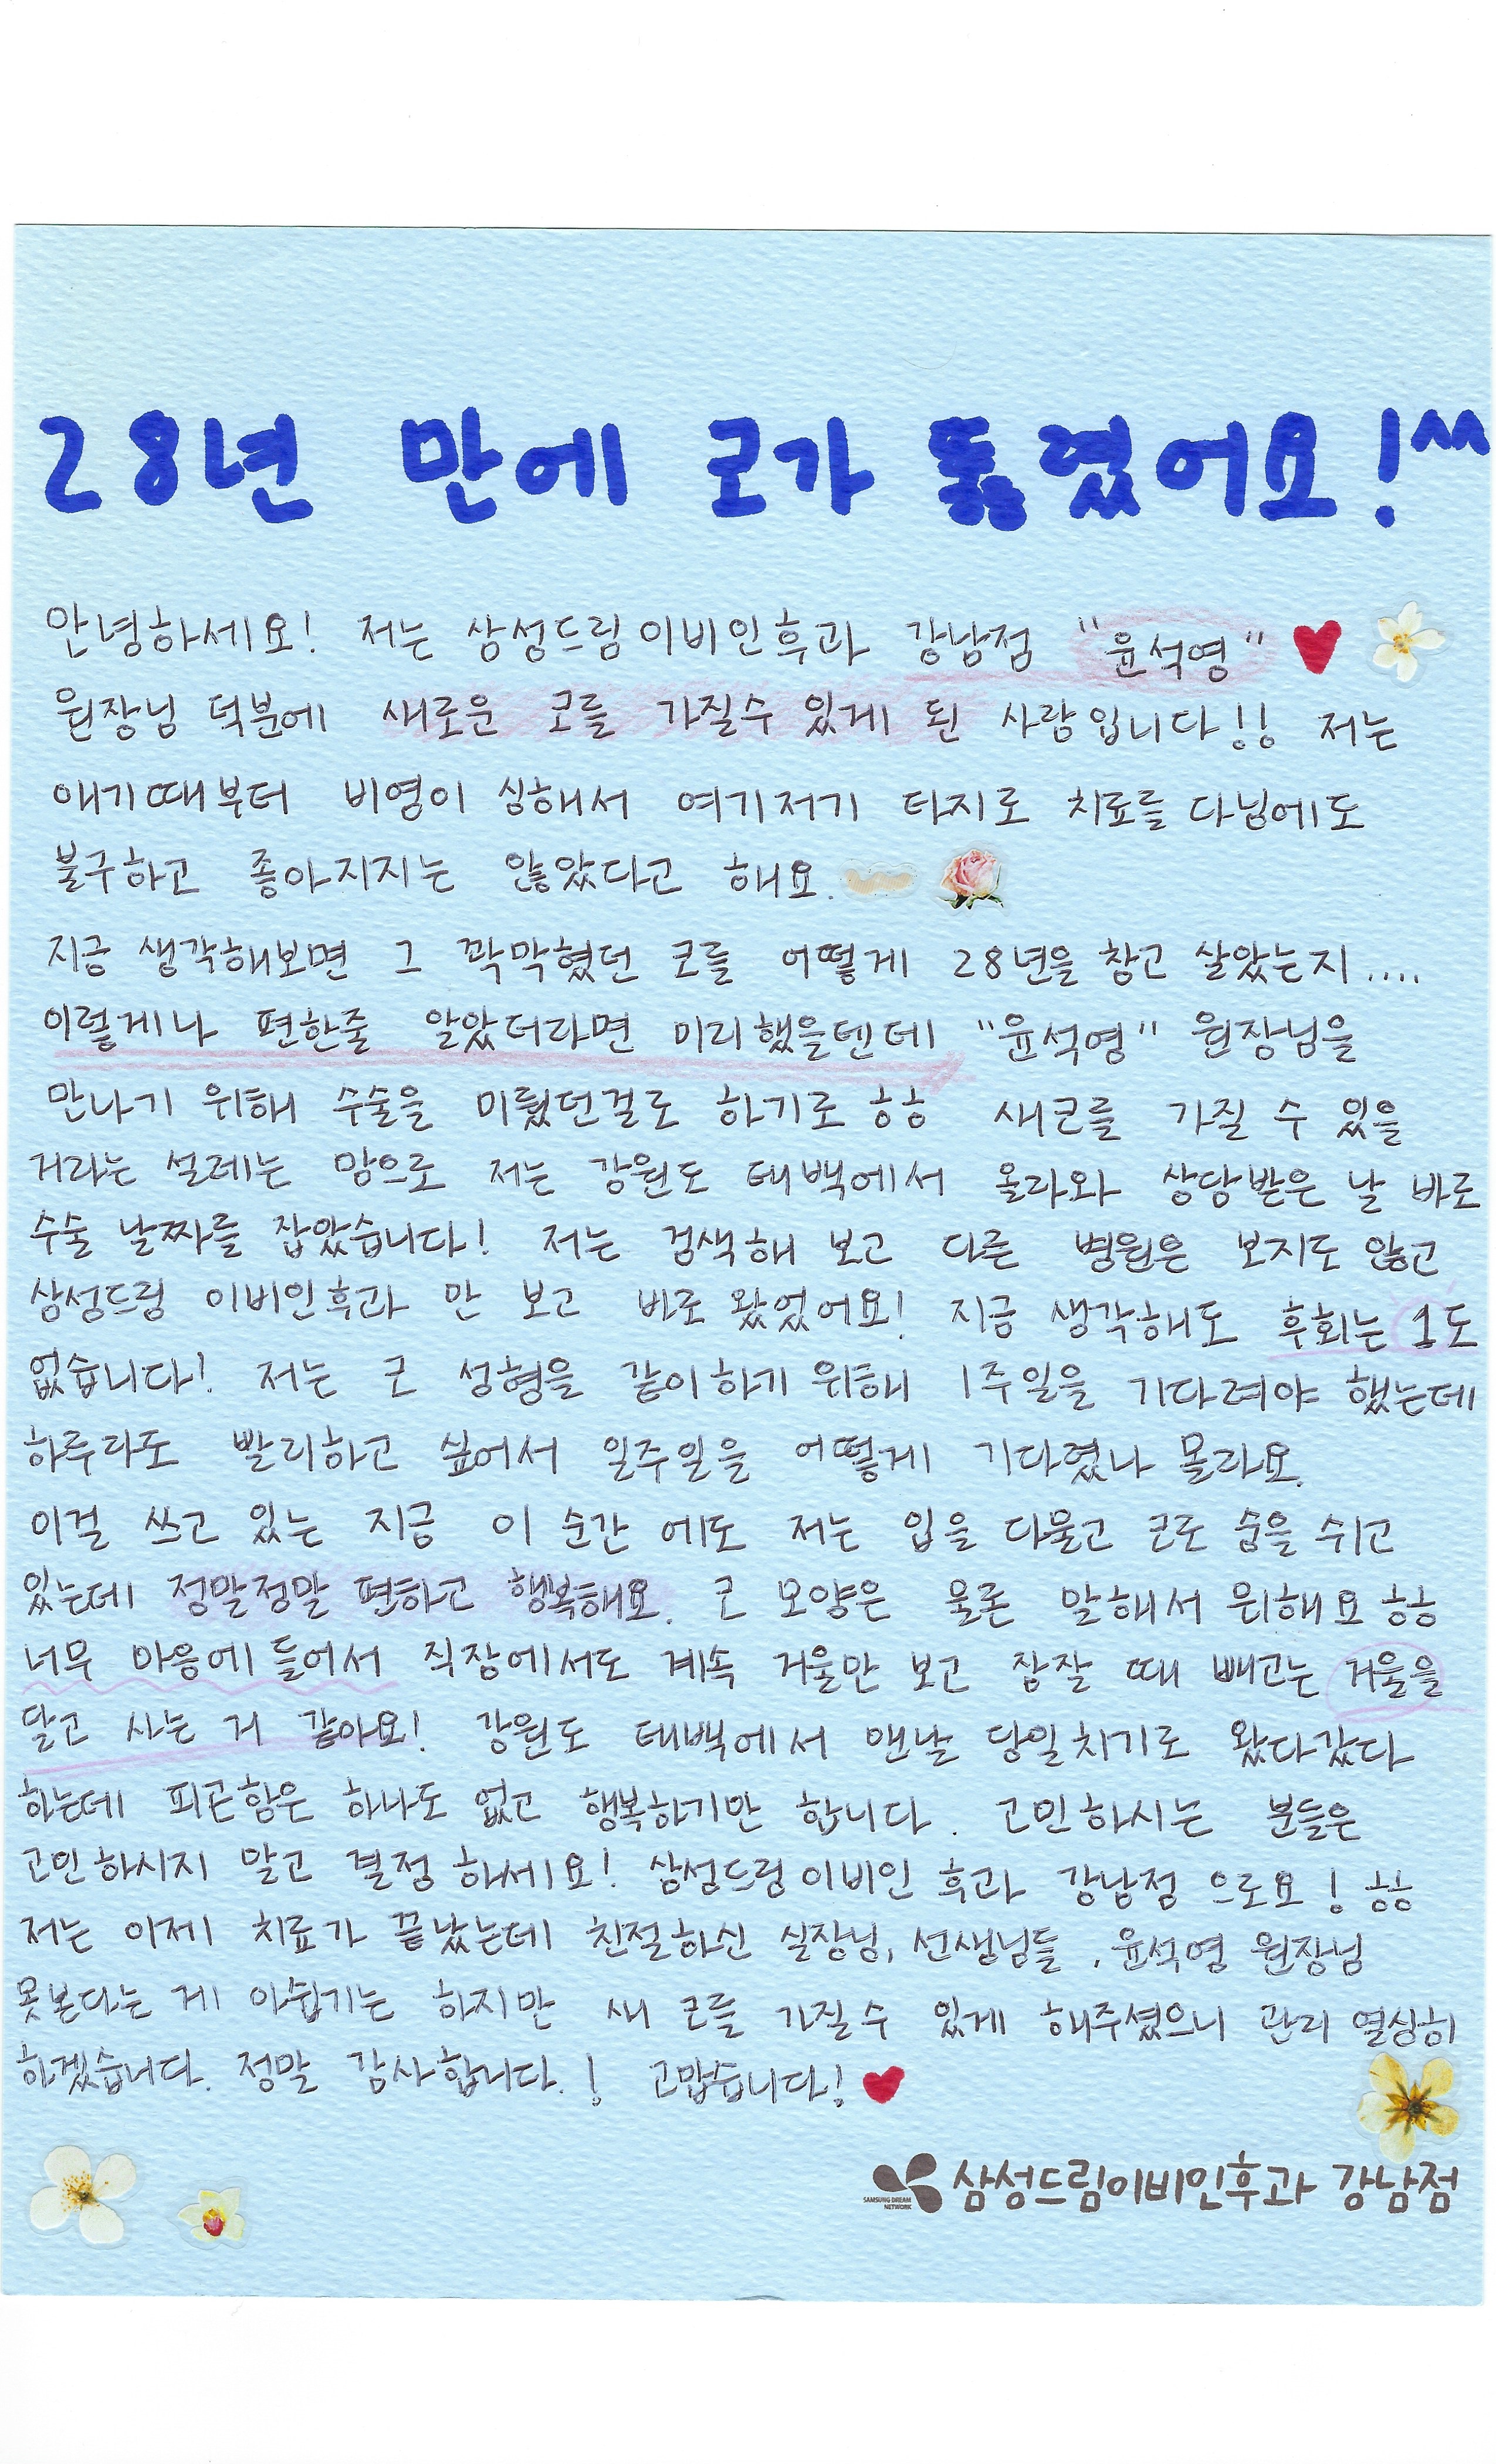 28년 만에 코가 뚫렸어요!^^
안녕하세요! 저는 삼성드림이비인후과 강남점 "윤석영" ♥
원장님 덕분에 새로운 코를 가질수 있게 된 사람입니다!! 저는
애기때부터 비염이 심해서 여기저기 타지로 치료를 다님에도
불구하고 좋아지지는 않았다고 해요.
지금 생각해보면 그 꽉막혔던 코를 어떻게 28년을 참고 살았는지....
이렇게나 편한줄 알았더라면 미리했을텐데 "윤석영" 원장님을
만나기 위해 수술을 미뤘던걸로 하기로 ㅎㅎ 새코를 가질 수 있을
거라는 설레는 맘으로 저는 강원도 태백에서 올라와 상담받은 날 바로
수술 날짜를 잡았습니다! 저는 검색해 보고 다른 병원은 보지도 않고
삼성드림 이비인후과 만 보고 바로 왔었어요! 지금 생각해도 후회는 1도
없습니다! 저는 코 성형을 같이하기 위해 1주일을 기다려야 했는데
하루라도 빨리하고 싶어서 일주일을 어떻게 기다렸나 몰라요.
이걸 쓰고 있는 지금 이 순간 에도 저는 입을 다물고 코로 숨을 쉬고
있는데 정말정말 편하고 행복해요. 코 모양은 물론 말해서 뭐해요 ㅎㅎ
너무 마음에 들어서 직장에서도 계속 거울만 보고 잠잘 때 빼고는 거울을
달고 사는 거 같아요! 강원도 태백에서 맨날 당일치기로 왔다갔다
하는데 피곤함은 하나도 없고 행복하기만 합니다. 고민하시는 분들은
고민하시지 말고 결정하세요! 삼성드림이비인 후과 강남점 으로요! ㅎㅎ
저는 이제 치료가 끝났는데 친절하신 실장님, 선생님들, 윤석영 원장님
못본다는 게 아쉽기는 하지만 새 코를 가질수 있게 해주셨으니 관리 열심히
하겠습니다. 정말 감사합니다.! 고맙습니다!♥
SAMSUNG DREAM NETWORK 삼성드림이비인후과 강남점